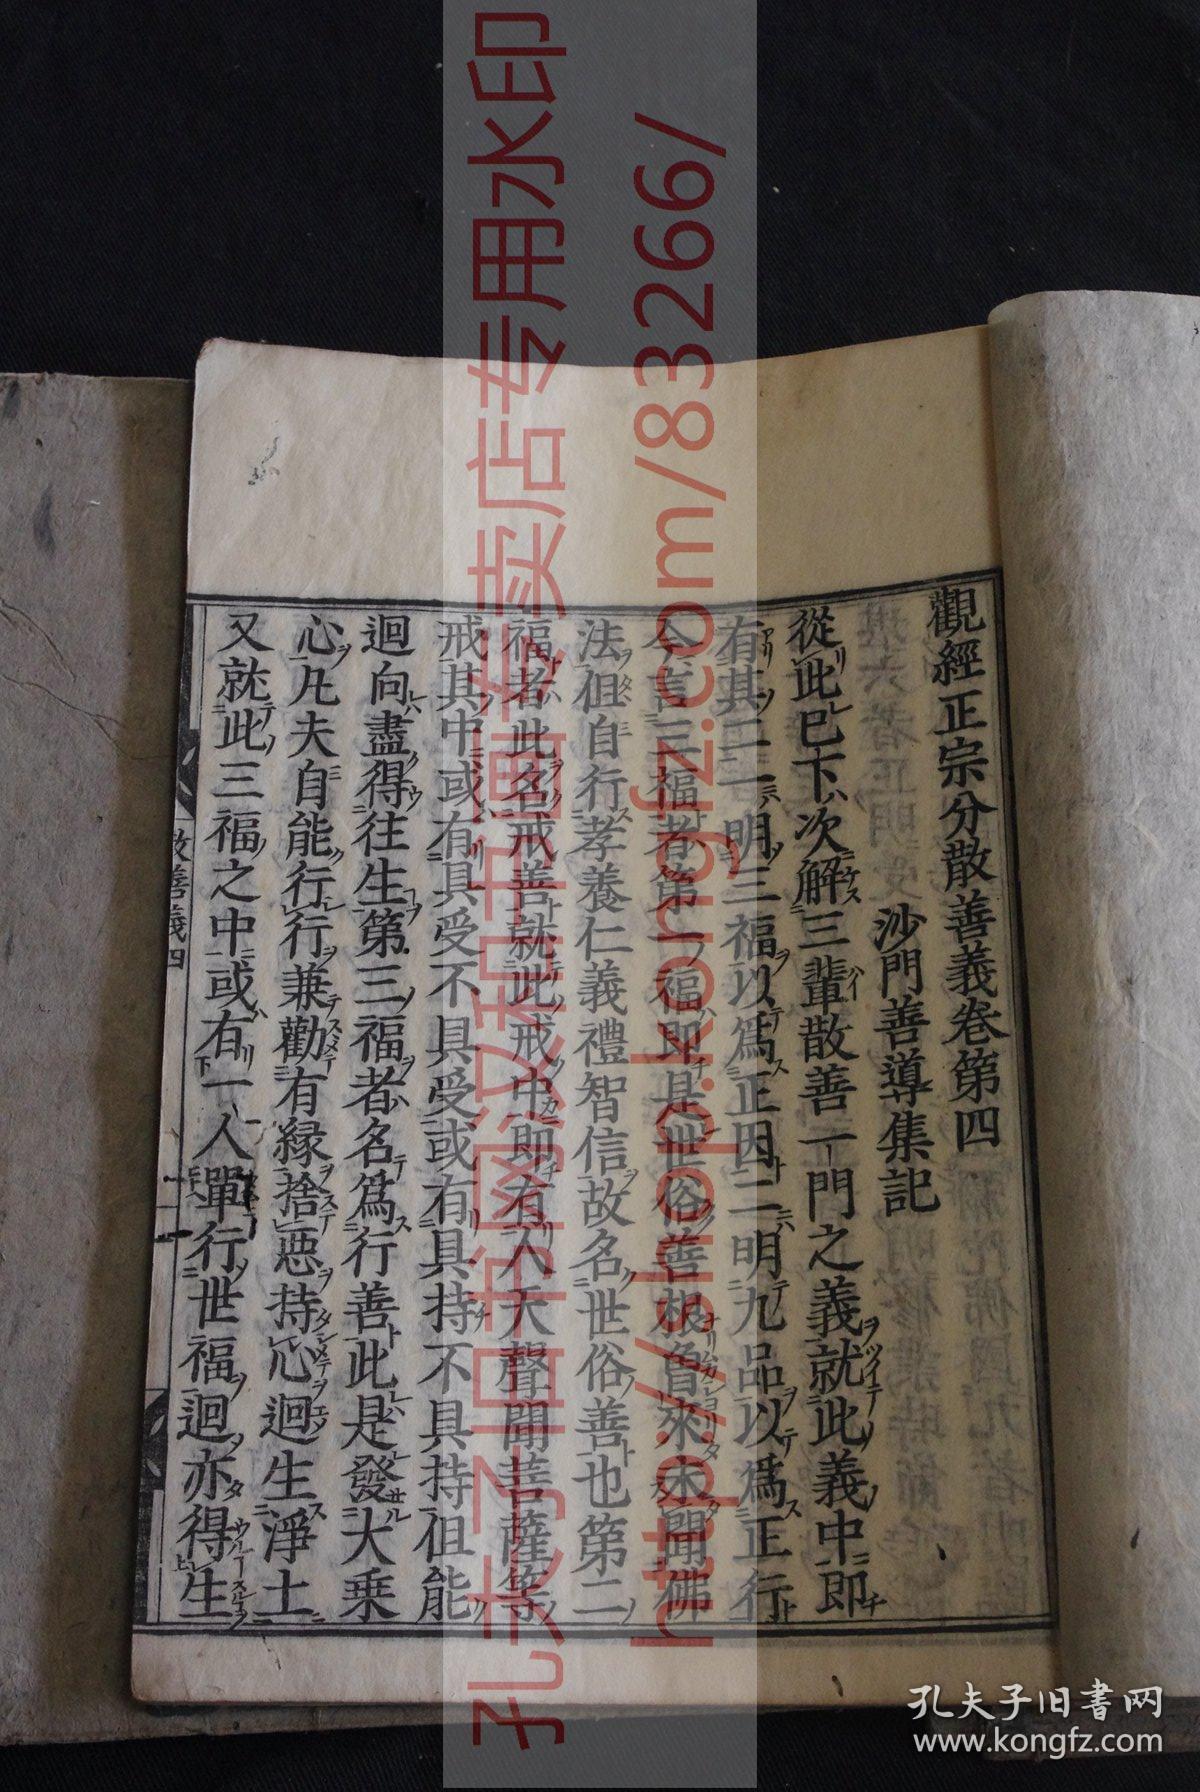 觀經正宗分散善義卷第四
沙門善導集記
從此已下次解三輩散善一門之義就此義中即
有其二一明三福以爲正因二明九品以爲正行
今言三福者第一福即是世俗善根曾來未聞佛
法但自行孝養仁義禮智信故名世俗善也第二
福者此名戒善就此戒中即有人天聲聞菩薩等
戒其中或有具受不具受或有具持不具持但能
迴向盡得往生第三福者名爲行善此是發大乗
心凡夫自能行行兼勸有縁捨惡持心迴生淨土
又就此三福之中或有一人單行世福迴亦得生
散善義四
孔夫子旧书网汉和书画买卖店专用水印
http://shop.kongfz.com/83266/
孔夫子旧书网
www.kongfz.com